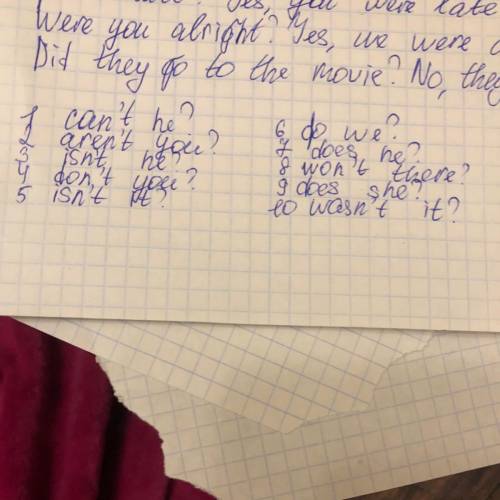 Yes, you were late
Were you alright? Yes, we were
Did they go to the movie? No, they
1 can't he?
2 aren't you?
3 isn't he?
4 don't you?
5 isn't it?
6 do we?
7 does he?
8 won't there?
9 does she?
10 wasn't it?